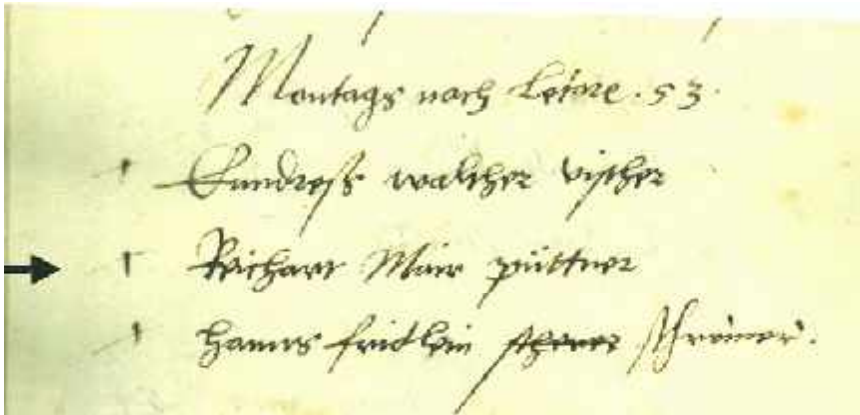 Montags nach Letare . 53 .
Enndress walcher vischer
Reichart Mair püttner
Hanns fridlein scherer schreiner .